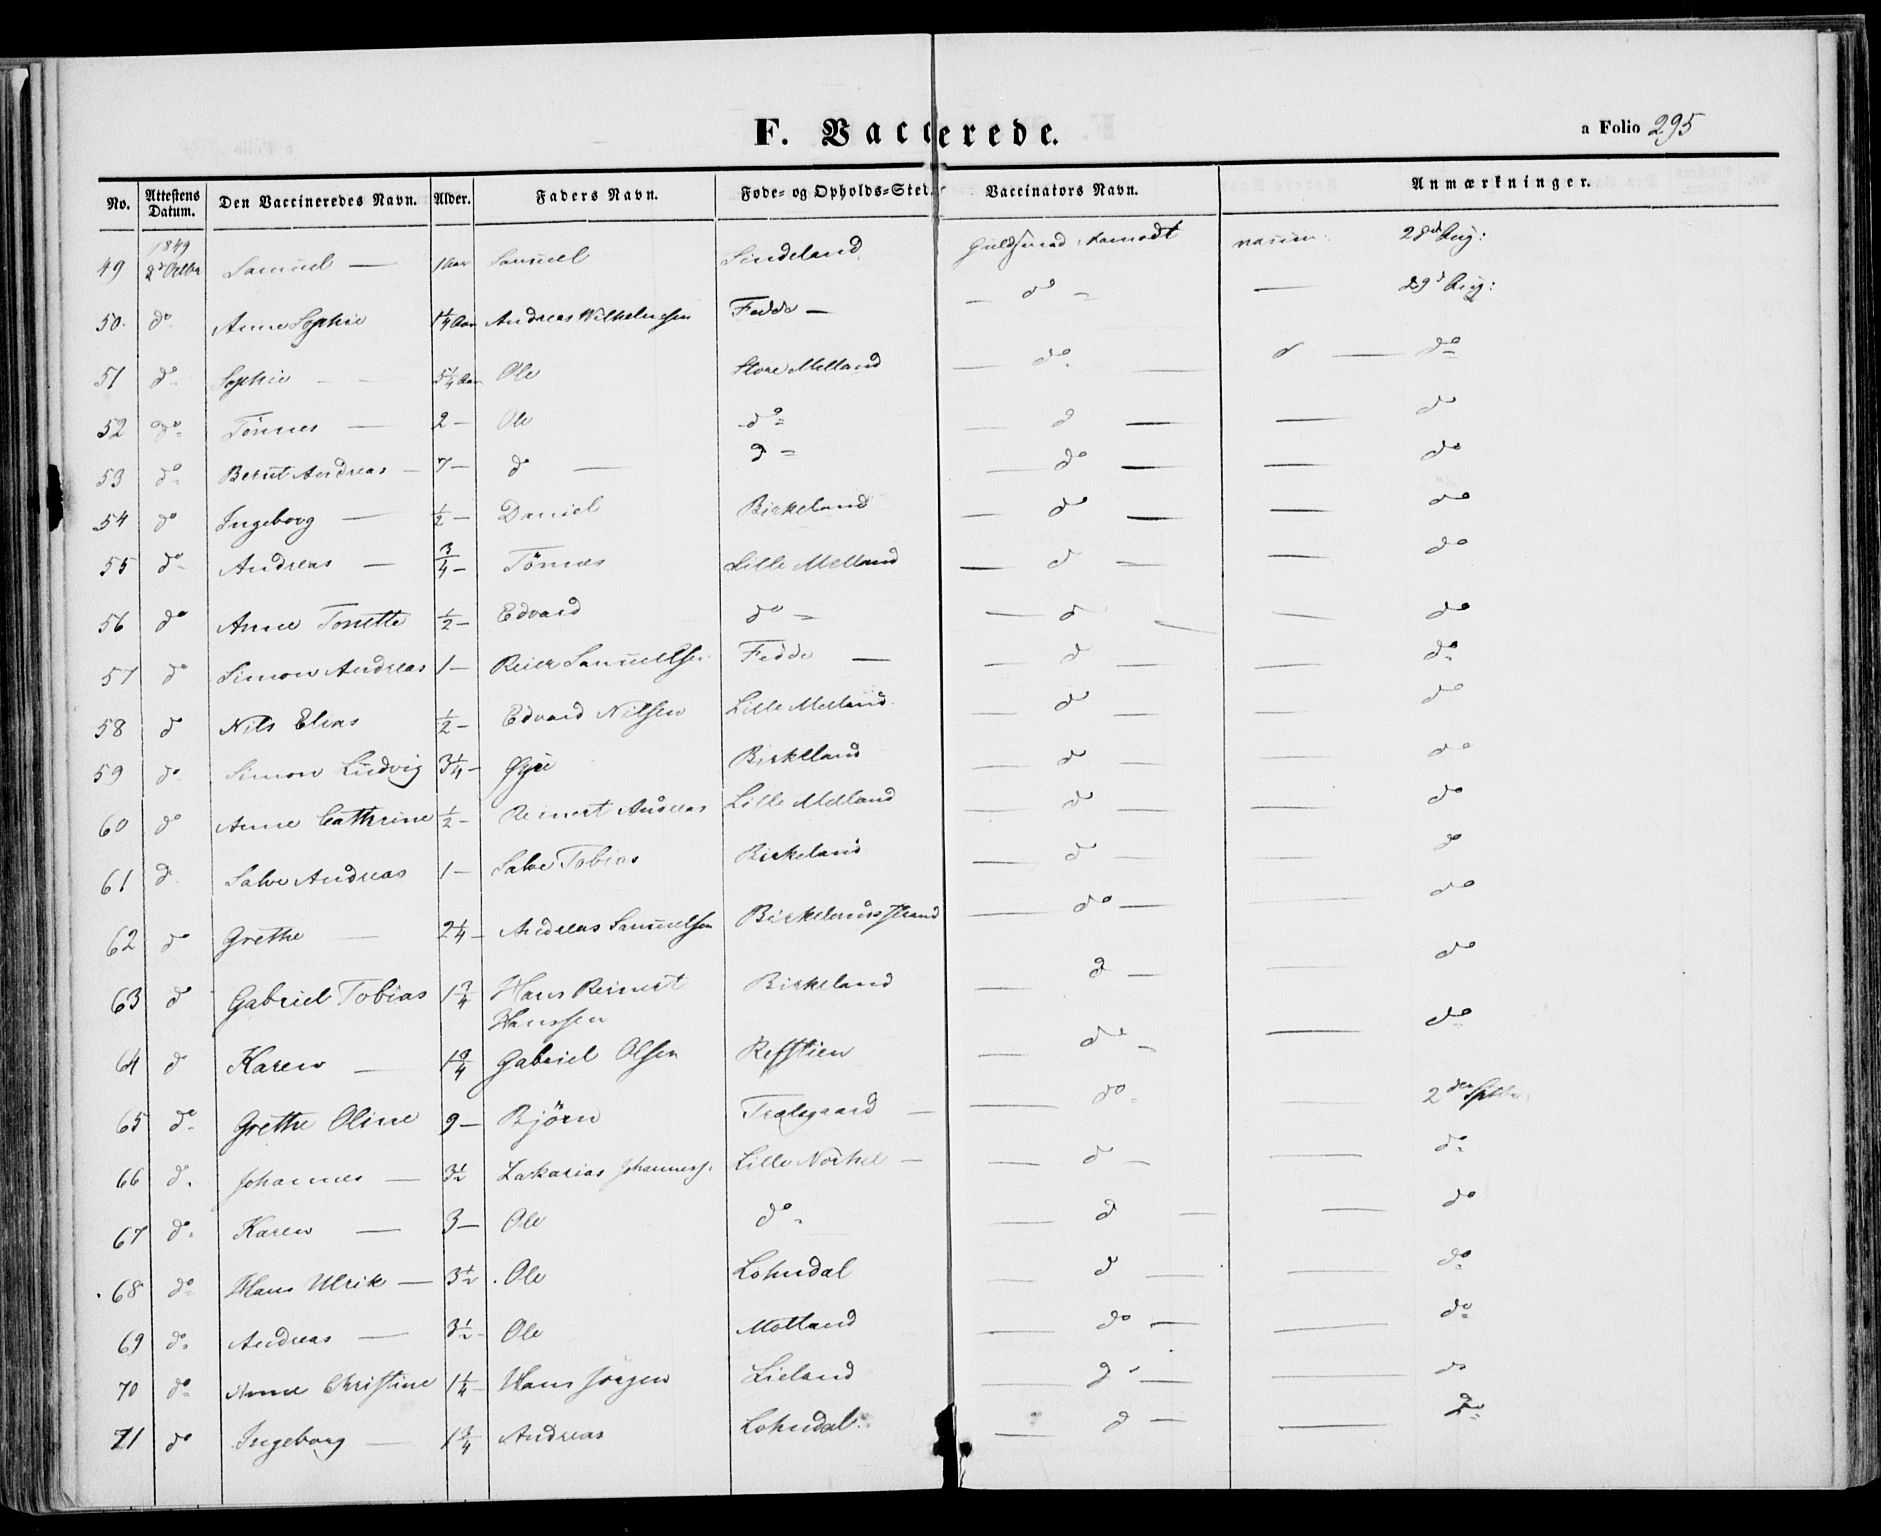 F. Vaccinerede.
a Folio 295
No. Attestens Datum. Den Vaccineredes Navn. Alder. Faders Navn. Føde- og Opholds-Sted. Vaccinators Navn. Anmærkninger.
1849
49 2d Octbr Samuel — 1 Aar Samuel Sindeland Guldsmed vaccin: 28d Aug:
50 do Anne Sophie 1¼ Aar Andreas Wilhelmsen Fedde — — do — — 29d Aug:
51 do Sophie — 5¼ Aar Ole Store Melland do — d — do
52 do Tönnes — 2 — Ole do — d — — do
53 do Berut Andreas — 7 — d — d — — do — — do
54 do Ingeborg — ½ — Daniel Birkeland — do — — do
55 do Andreas — ¾ — Tönnes Lille Melland — d — — do
56 do Anne Tonette ½ — Edvard do — — d — — do
57 do Simon Andreas 1 — Reier Samuelsen Fedde — — d — — do
58 d Nils Elias ½ — Edvard Nilsen Lille Melland — do — — do
59 do Simon Ludvig 3¼ — Gÿe Birkeland — do — — do
60 do Anne Cathrine ½ — Reinert Andreas Lille Melland — do — — do
61 d Salve Andreas 1 — Salve Tobias Birkeland — do — do
62 do Grethe — 2¼ — Andreas Samuelsen Birkelandsstrand — do — — do
63 d Gabriel Tobias 1¾ Hans Reinert Birkeland — d — — do
Hanssen
64 d Karen — 1¾ Gabriel Olsen Refstien — do — — do
65 do Grethe Oline 9 — Björn Tralsgaard — — do — 2den Sptbr:
66 do Johannes — 3½ Zakarias Johanness. Lille — — d — — do
67 do Karen — 3 — Ole do — d — — do
68 do Hans Ulrik — 3½ Ole Lohndal — d — — do
69 do Andreas — 3½ — Ole Motland — do — — do
70 do Anne Christine 1¼ — Hans Jörgen Lieland d — — do
71 do Ingeborg — 1¾ Andreas Lohndal — d — — do